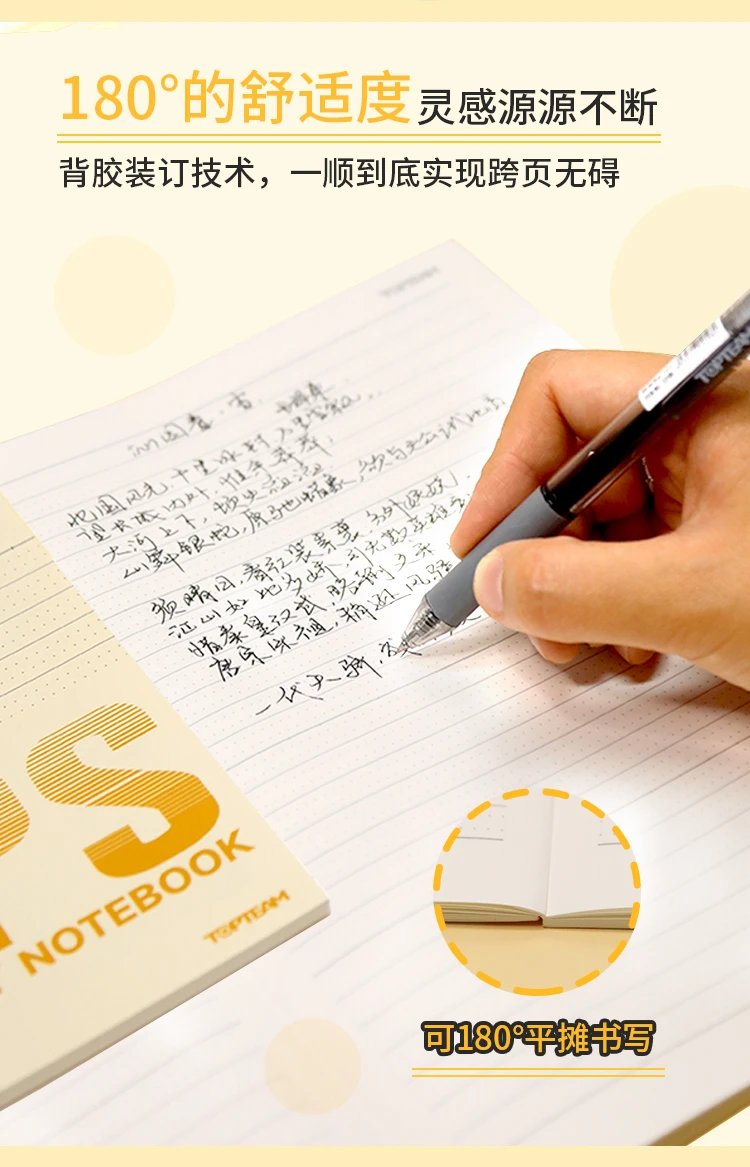 180°的舒适度 灵感源源不断
背胶装订技术，一顺到底实现跨页无碍
TOPTEAM
沁园春·雪
北国风光，千里冰封，万里雪飘，
望长城内外，惟余莽莽，
大河上下，顿失滔滔，
山舞银蛇，原驰蜡象，欲与天公试比高
须晴日，看红装素裹，分外妖娆，
江山如此多娇，引无数英雄
惜秦皇汉武，略输文采
唐宗宋祖，稍逊风骚
一代天骄，
TOPTEAM
PS
NOTEBOOK
TOPTEAM
可180°平摊书写